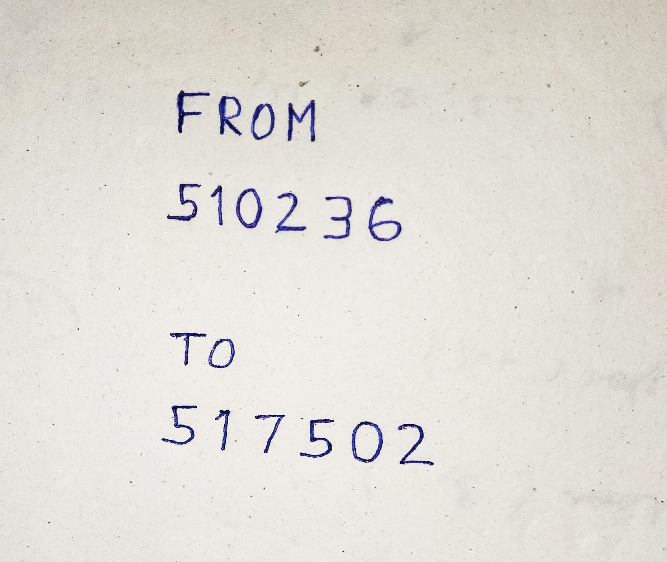 FROM
510236
TO
517502